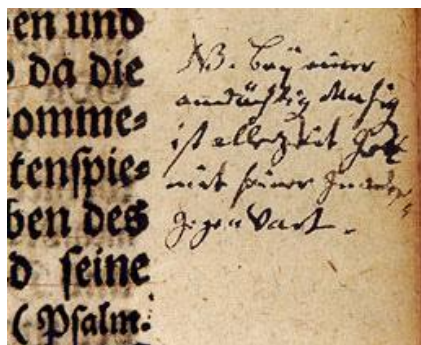 en und
da die
omme⸗
tenſpie⸗
ben des
d ſeine
(Pſalm.
NB. Beÿ einer
andächtig Musiq
ist allezeit Gott
mit seiner Gnaden=
Gegenwart.